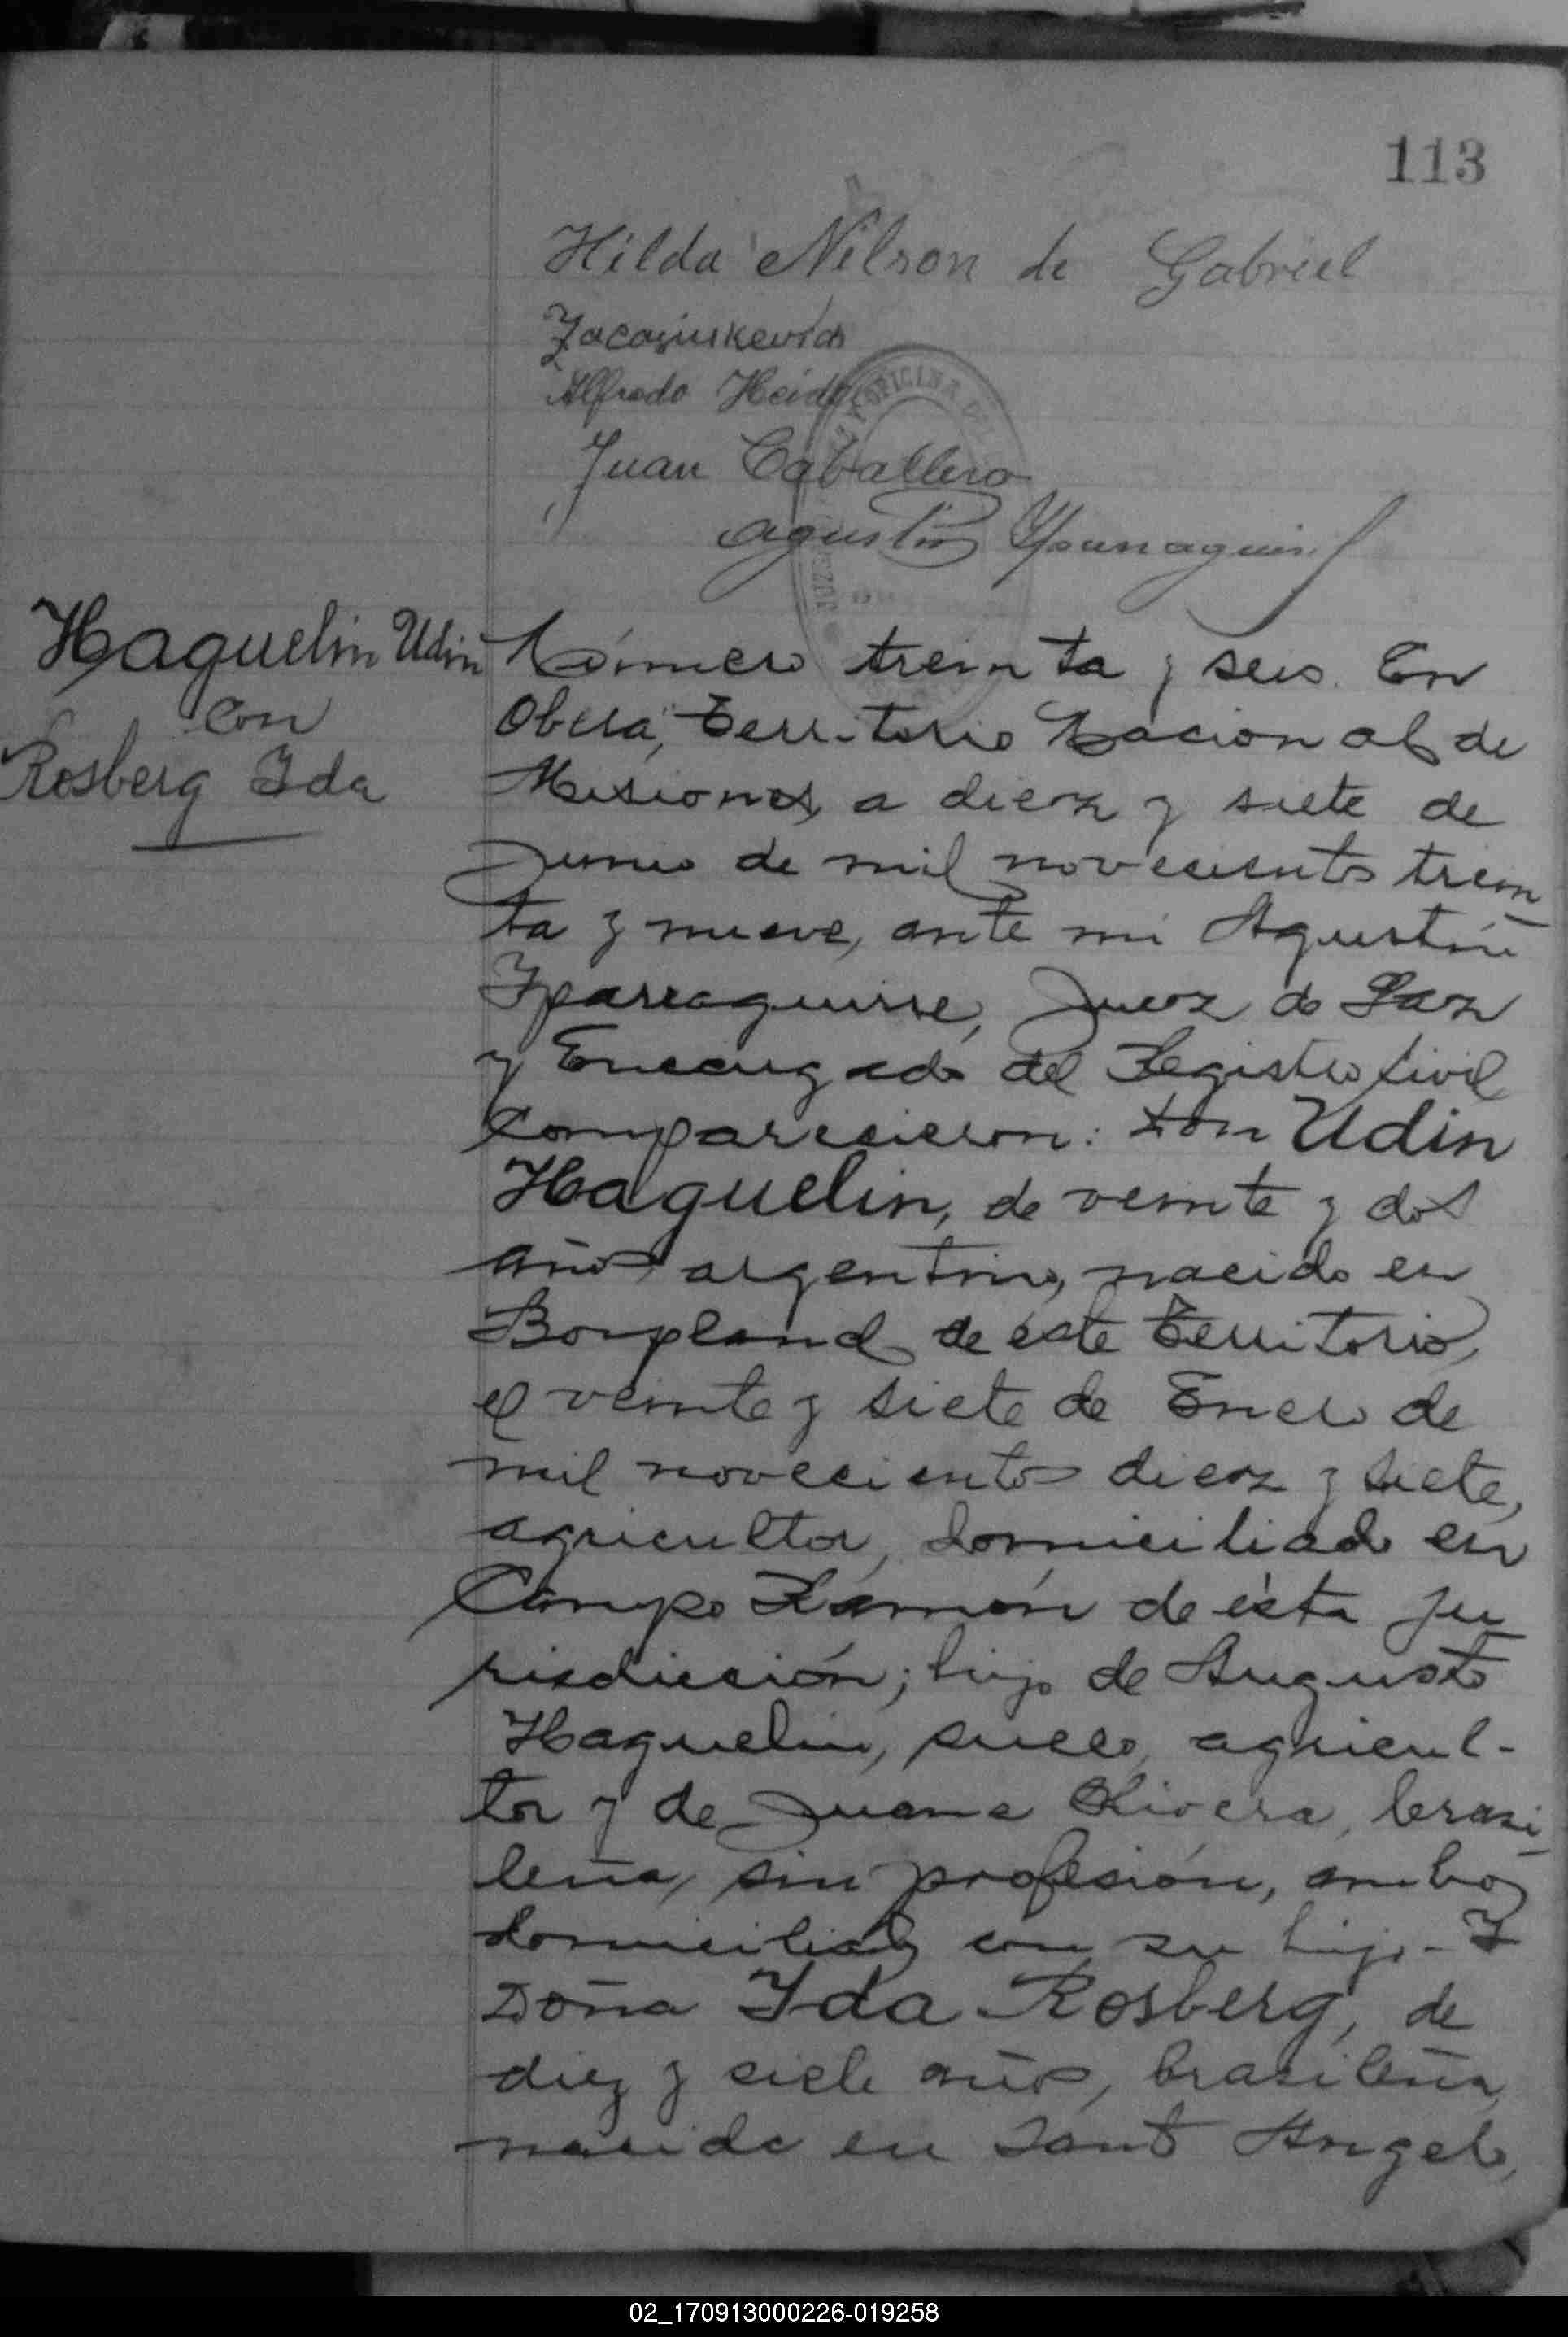 113
Hilda Nilson de Gabriel
Alfredo Heide
Juan Caballero
Agustin Yparraguirre
OFICINA DEL
Haguelin Udin
con
Rosberg Ida
Número treinta y seis. En
Oberá, Territorio Nacional de
Misiones, a diez y siete de
Junio de mil novecientos trein
ta y nueve, ante mi Agustín
Yparraguirre, Juez de Paz
y Encargado del Registro Civil
Comparecieron: Don Udin
Haguelin, de veinte y dos
años argentino, nacido en
Bonpland de éste Territorio,
el veinte y siete de Enero de
mil novecientos diez y siete,
agricultor, domiciliado en
Campo Ramón de ésta ju
risdicción; hijo de Augusto
Haguelin, sueco, agricul-
tor y de Juana Olivera, brasi
leña, sin profesión, ambos
domiciliados con su hijo.- Y
Doña Ida Rosberg, de
diez y siete años, brasileña,
nacida en Santo Angelo,
02_170913000226-019258